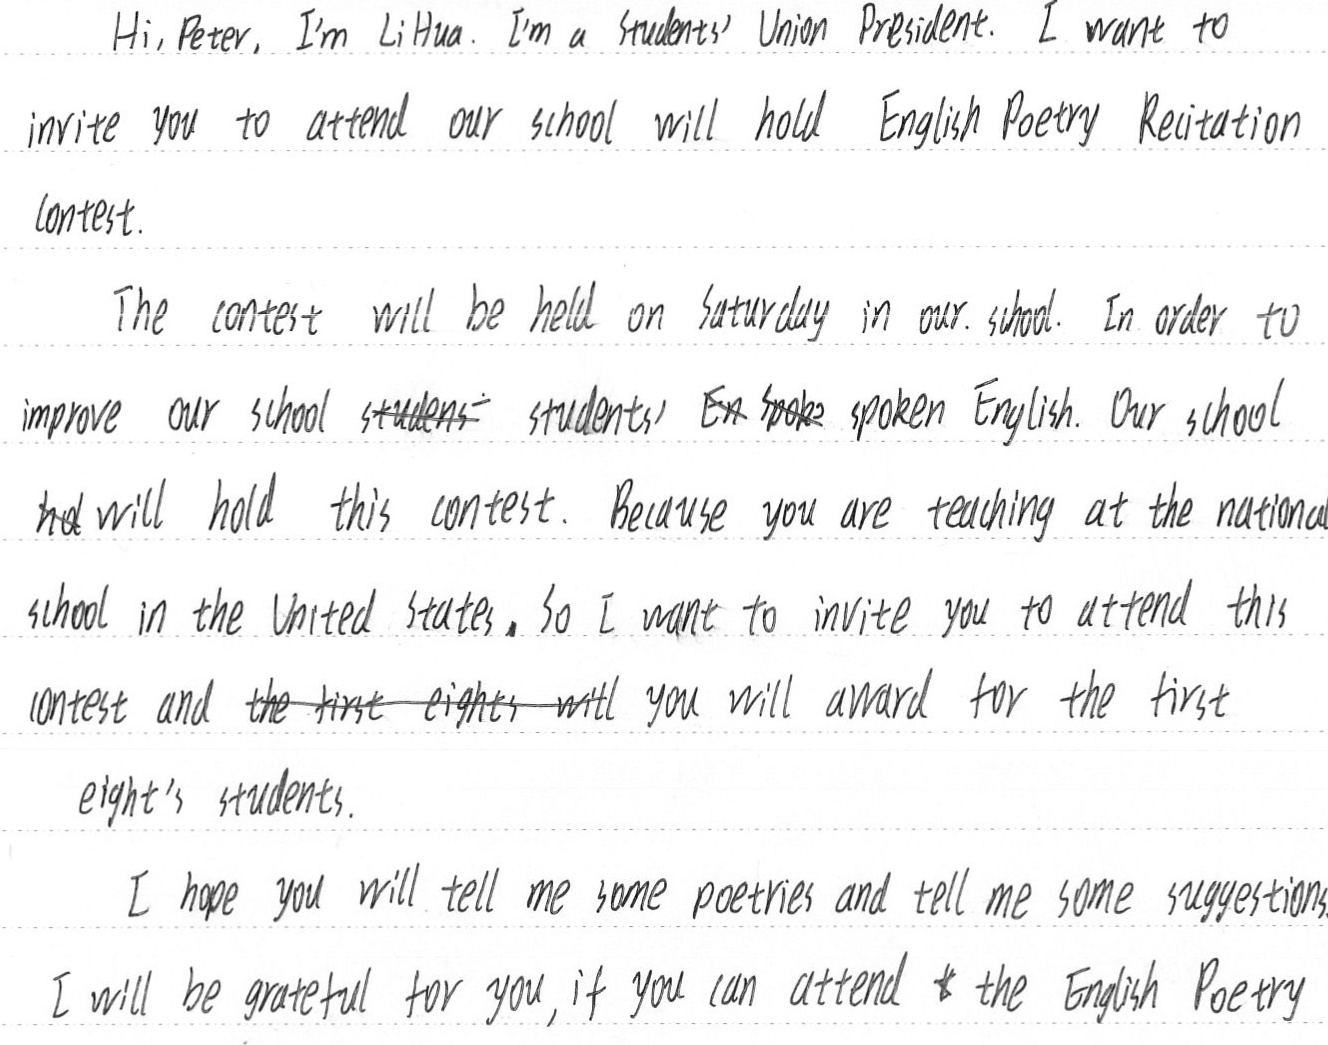 Hi, Peter, I'm Li Hua. I'm a Students' Union President. I want to
invite you to attend our school will hold English Poetry Recitation
Contest.
The contest will be held on Saturday in our. school. In order to
improve our school students' spoken English. Our school
will hold this contest. Because you are teaching at the national
school in the United States. So I want to invite you to attend this
contest and you will award for the first
eight's students.
I hope you will tell me some poetries and tell me some suggestions.
I will be grateful for you, if you can attend the English Poetry